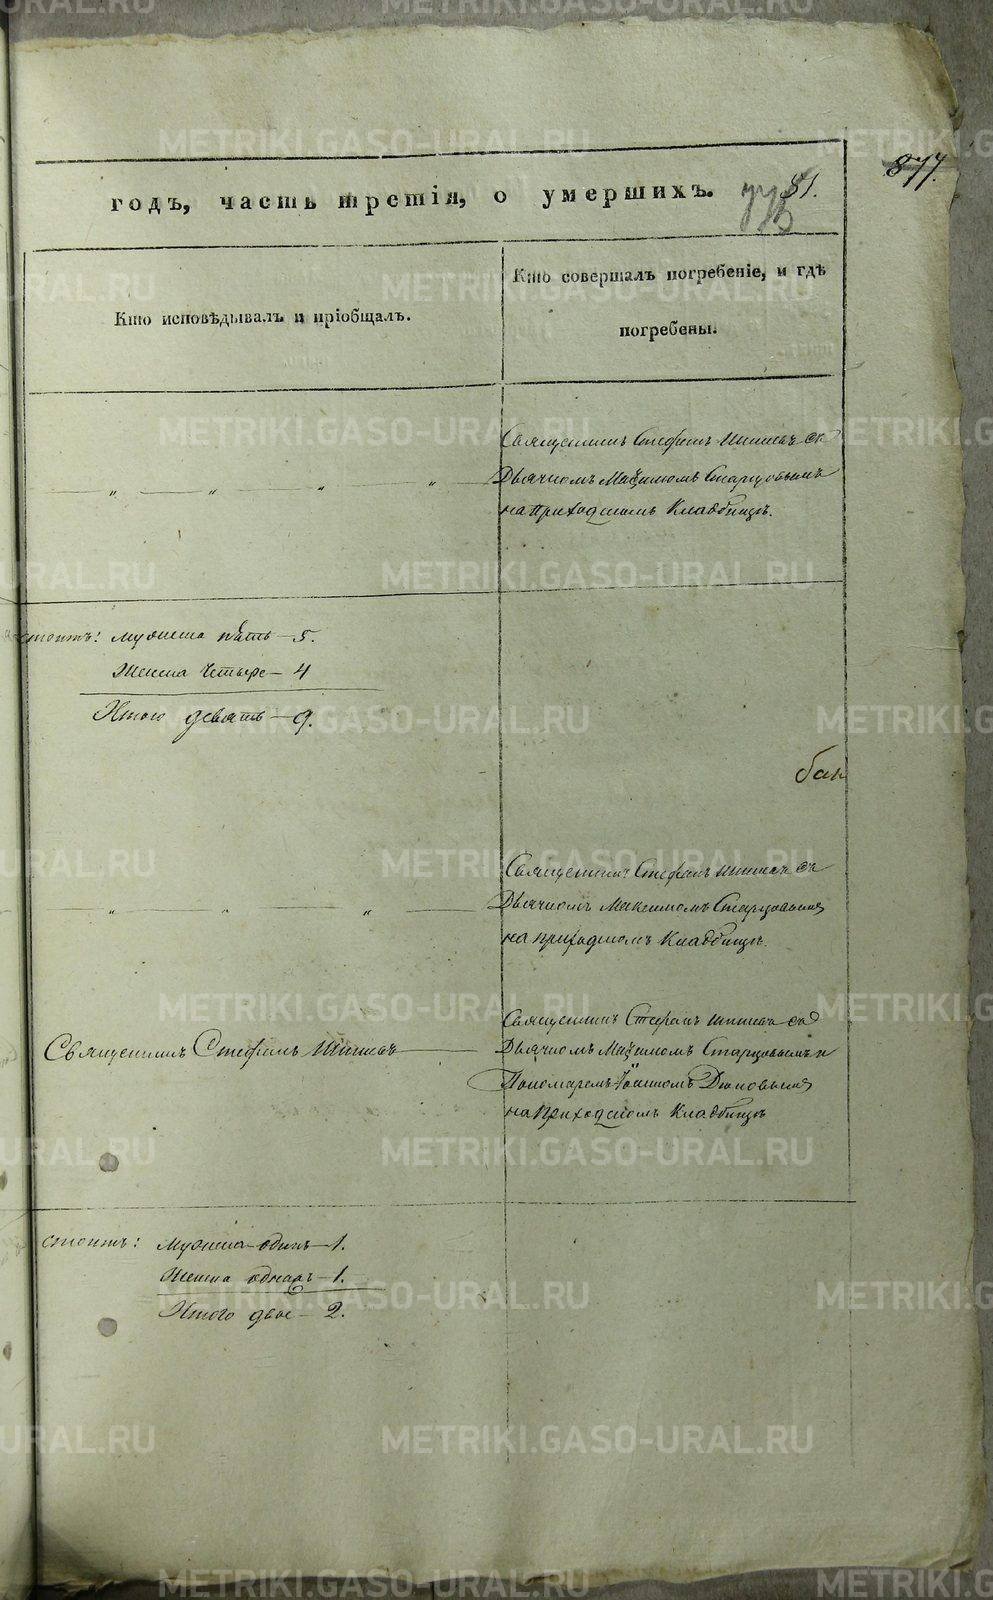 877.
годъ, часть третія, о умершихъ. 81.
Кто исповѣдывалъ и пріобщалъ.
Кто совершалъ погребеніе, и гдѣ
погребены.
Священникъ Стефанъ съ
Дьячкомъ Маѯимомъ Старцовымъ
на приходскомъ Кладбищѣ.
стоитъ: мужеска пять — 5.
Женска четыре — 4
Итого девять — 9.
Священникъ Стефанъ съ
Дьячкомъ Максимомъ Старцовымъ
на приходскомъ Кладбищѣ.
Священникъ Стефанъ
Священникъ Стефанъ съ
Дьячкомъ Маѯимомъ Старцовымъ и
Пономаремъ Іоанномъ
на приходскомъ Кладбищѣ
стоитъ: Мужеска одинъ — 1.
Женска одна — 1.
Итого двое — 2.
METRIKI.GASO-URAL.RU